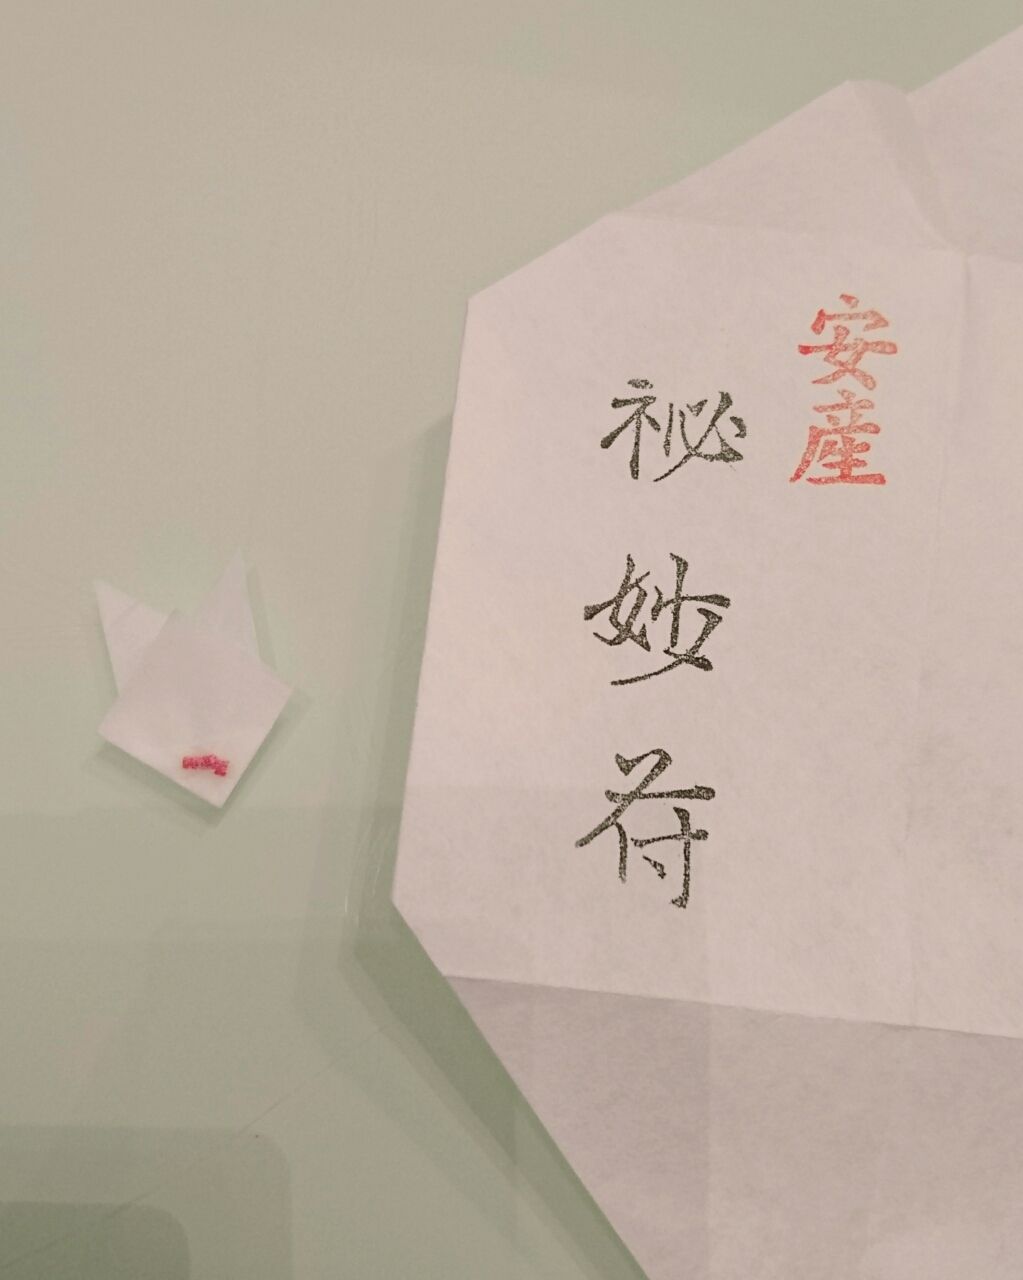 安産
祕妙符